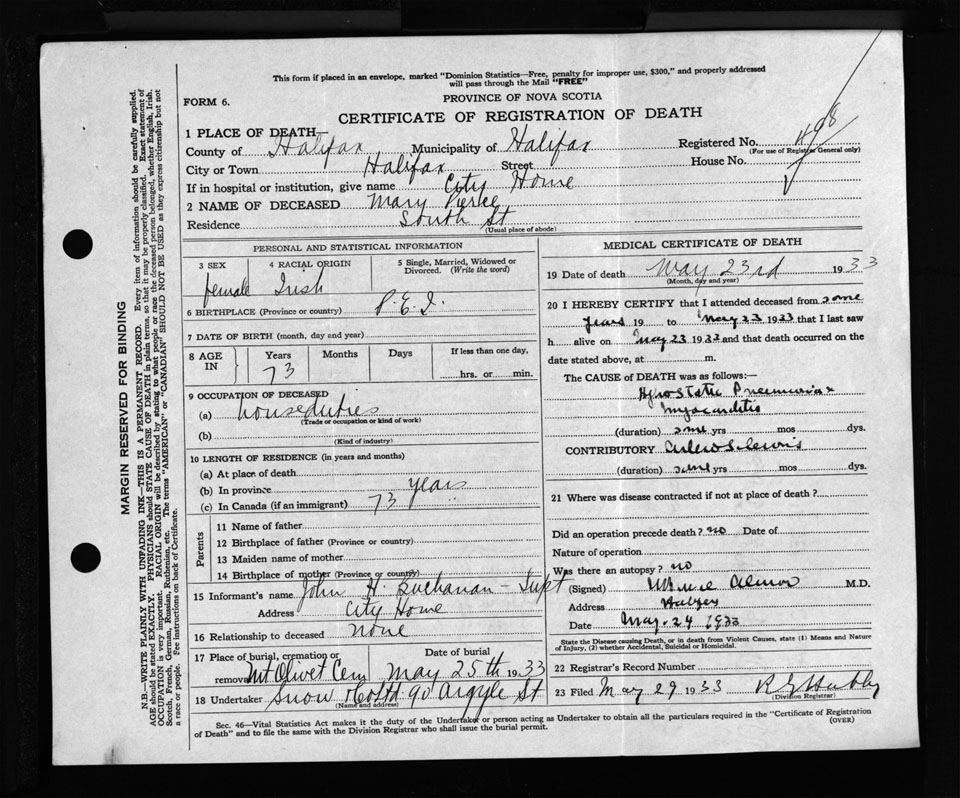 This form if placed in an envelope, marked "Dominion Statistics—Free, penalty for improper use, $300," and properly addressed
will pass through the Mail "FREE"
FORM 6.
PROVINCE OF NOVA SCOTIA
CERTIFICATE OF REGISTRATION OF DEATH
1 PLACE OF DEATH—
County of Halifax Municipality of Halifax Registered No. 498
(For use of Registrar General only)
City or Town Halifax Street House No.
If in hospital or institution, give name City Home
2 NAME OF DECEASED Mary Pierce
Residence South St
(Usual place of abode)
PERSONAL AND STATISTICAL INFORMATION
3 SEX 4 RACIAL ORIGIN 5 Single, Married, Widowed or
Divorced. (Write the word)
female Irish
6 BIRTHPLACE (Province or country) P.E.I.
7 DATE OF BIRTH (month, day and year)
8 AGE IN Years Months Days If less than one day,
73 hrs. or min.
9 OCCUPATION OF DECEASED
(a) houseduties
(Trade or occupation or kind of work)
(b)
(Kind of industry)
10 LENGTH OF RESIDENCE (in years and months)
(a) At place of death
(b) In province years
(c) In Canada (if an immigrant) 73 "
Parents
11 Name of father
12 Birthplace of father (Province or country)
13 Maiden name of mother
14 Birthplace of mother (Province or country)
15 Informant's name John H. Buchanan - Supt
Address City Home
16 Relationship to deceased none
17 Place of burial, cremation or Date of burial
removal Mt Olivet Cem May 25th 1933
18 Undertaker Snow & Co Ltd 90 Argyle St
(Name and address)
MEDICAL CERTIFICATE OF DEATH
19 Date of death May 23rd 1933
(Month, day and year)
20 I HEREBY CERTIFY that I attended deceased from some
years 19 to May 23 1933 that I last saw
h alive on May 23 1933 and that death occurred on the
date stated above, at m.
The CAUSE OF DEATH was as follows:—
Hypostatic Pneumonia &
Myocarditis
(duration) some yrs mos dys.
CONTRIBUTORY Arterio Sclerosis
(duration) some yrs mos dys.
21 Where was disease contracted if not at place of death?
Did an operation precede death? no Date of
Nature of operation
Was there an autopsy? no
(Signed) Almon M.D.
Address Halifax
Date May 24 1933
State the Disease causing Death, or in death from Violent Causes, state (1) Means and Nature
of Injury, (2) whether Accidental, Suicidal or Homicidal.
22 Registrar's Record Number
23 Filed May 29 1933
(Division Registrar)
Sec. 46—Vital Statistics Act makes it the duty of the Undertaker or person acting as Undertaker to obtain all the particulars required in the "Certificate of Registration
of Death" and to file the same with the Division Registrar who shall issue the burial permit. (OVER)
MARGIN RESERVED FOR BINDING
N.B.—WRITE PLAINLY WITH UNFADING INK—THIS IS A PERMANENT RECORD. Every item of information should be carefully supplied.
AGE should be stated EXACTLY. PHYSICIANS should STATE CAUSE OF DEATH in plain terms, so that it may be properly classified. Exact statement of
OCCUPATION is very important. RACIAL ORIGIN will be described by stating what people or race the deceased person belonged, whether English, Irish,
Scotch, French, German, Russian, Ruthenian, etc. The terms "AMERICAN" or "CANADIAN" SHOULD NOT BE USED as they express citizenship but not
a race or people. See instructions on back of Certificate.